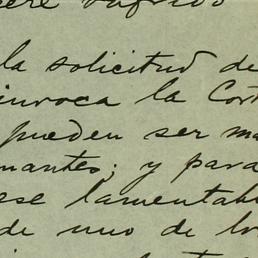 la solicitud de
invoca la Cort
pueden ser ma
mantes; y para
ese lamentab
de uno de lo